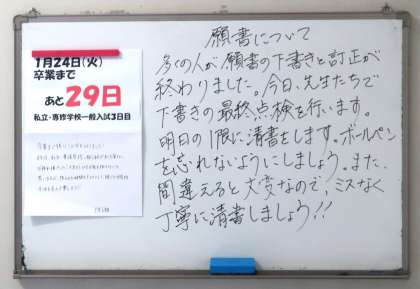 1月24日(火)
卒業まで
あと29日
私立・専修学校一般入試3日目
願書について
多くの人が願書の下書きと訂正が
終わりました。今日、先生たちで
下書きの最終点検を行います。
明日の1限に清書をします。ボールペン
を忘れないようにしましょう。また、
間違えると大変なので、ミスなく
丁寧に清書しましょう!!